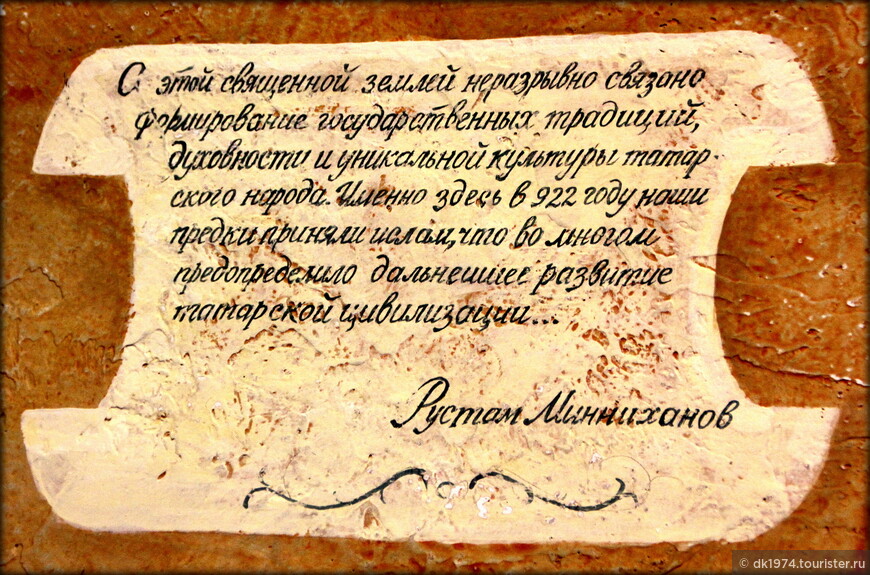 С этой священной землей неразрывно связано
формирование государственных традиций,
духовности и уникальной культуры татар-
ского народа. Именно здесь в 922 году наши
предки приняли ислам, что во многом
предопределило дальнейшее развитие
татарской цивилизации...
Рустам Минниханов
© dk1974.tourister.ru